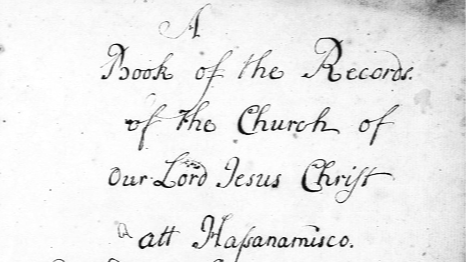 A
Book of the Records.
of the Church of
Our Lord Jesus Christ
att Haſsanamisco.